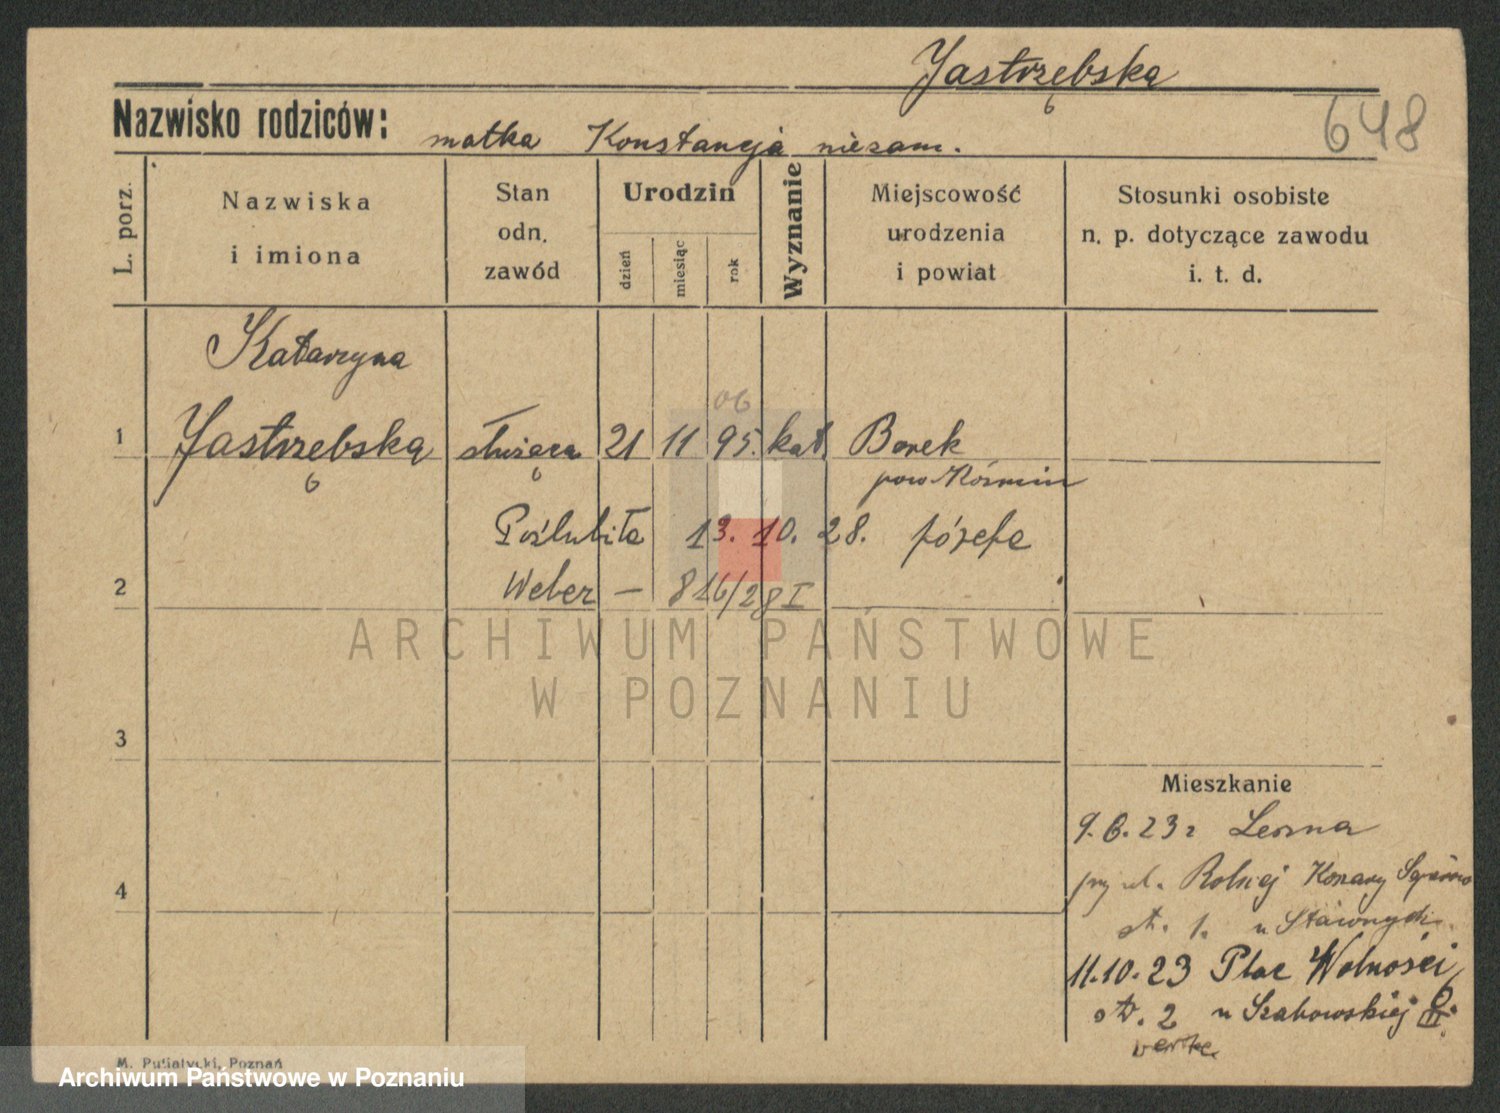 Jastrzębska
Nazwisko rodziców: matka Konstancja niezam.
648
L. porz.
Nazwiska
i imiona
Stan
odn.
zawód
Urodzin
dzień
miesiąc
rok
Wyznanie
Miejscowość
urodzenia
i powiat
Stosunki osobiste
n. p. dotyczące zawodu
i. t. d.
Katarzyna
06
1 Jastrzębska służąca 21 11 95. kat. Borek
pow Koźmin
Poślubiła 13. 10. 28. Józefa
2 Weber — 816/28 I
ARCHIWUM PAŃSTWOWE
W POZNANIU
3
Mieszkanie
9.6.23
4 przy ul. Rolnej
str. 1. u
11.10.23 Plac Wolności
str. 2 u Szabowskiej
M. Pujiatycki, Poznań
Archiwum Państwowe w Poznaniu